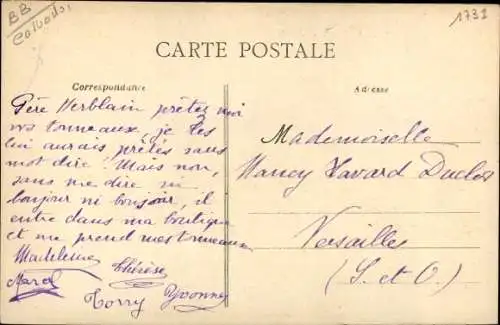 BB
Calvados.
1731
CARTE POSTALE
Correspondance
Adresse
Père Verblain prêtez moi
vos tonneaux, je les
lui aurais prêtés sans
mot dire. Mais non,
sans me dire ni
bonjour ni bonsoir, il
entre dans ma boutique
et me prend mes tonneaux
Madeleine Thérèse
Marcel
Torry Yvonne
Mademoiselle
Nancy Havard Duclos
Versailles
(S. et O.)